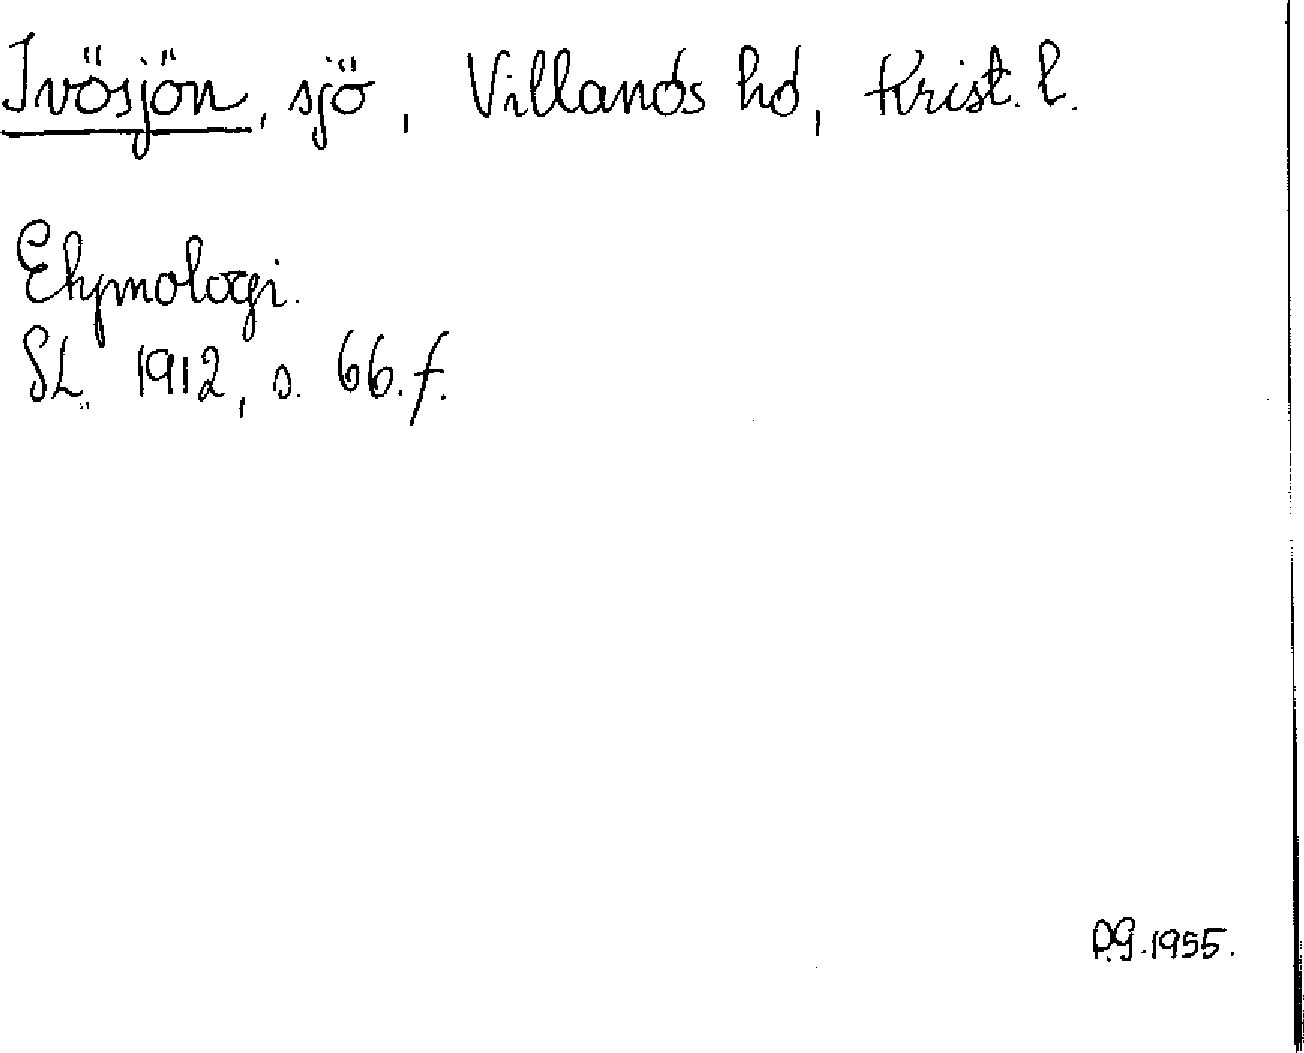 Ivösjön, sjö, Villands hd, Krist. l.
Etymologi.
SL. 1912, s. 66.f.
P.G. 1955.